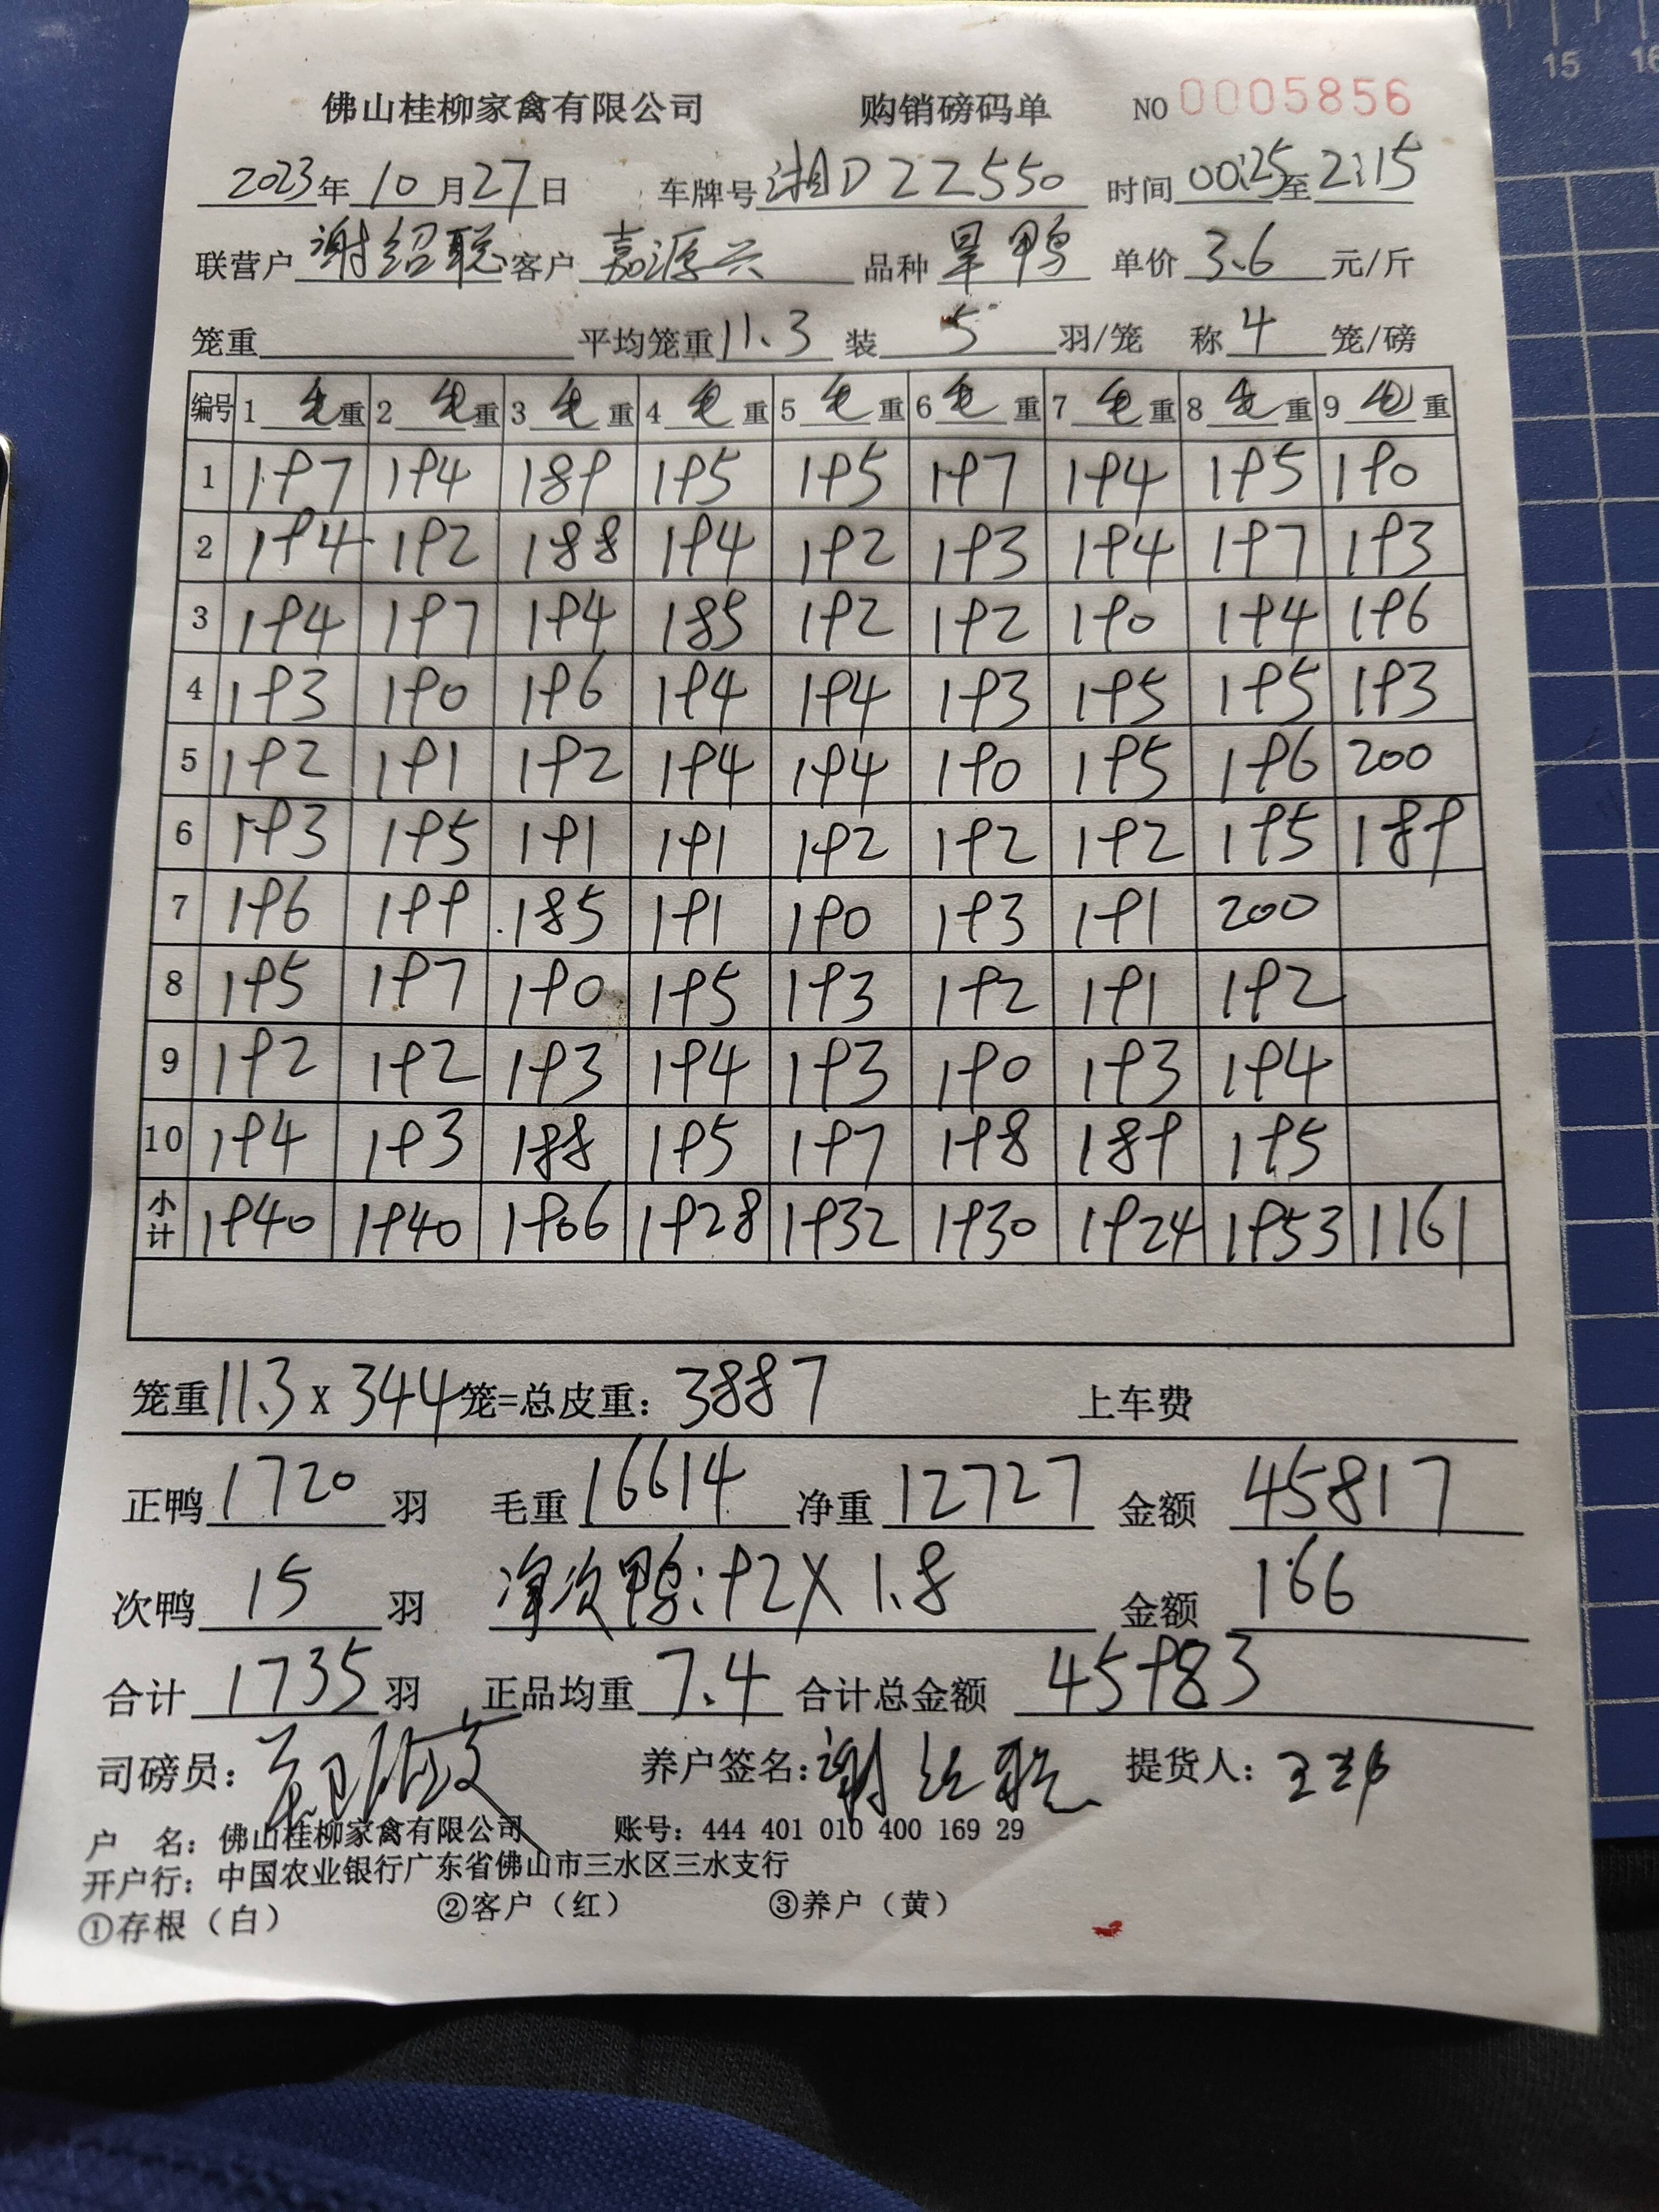 佛山桂柳家禽有限公司 购销磅码单 NO 0005856
2023年10月27日 车牌号湘D2Z550 时间00:25至2:15
联营户谢绍聪客户嘉源兴 品种旱鸭 单价3.6元/斤
笼重 平均笼重11.3 装5羽/笼 称4笼/磅
编号 1毛重 2毛重 3毛重 4毛重 5毛重 6毛重 7毛重 8毛重 9毛重
1 197 194 189 195 195 197 194 195 190
2 194 192 188 194 192 193 194 197 193
3 194 197 194 185 192 192 190 194 196
4 193 190 196 194 194 193 195 195 193
5 192 191 192 194 194 190 195 196 200
6 193 195 191 191 192 192 192 195 189
7 196 199 185 191 190 193 191 200
8 195 197 190 195 193 192 191 192
9 192 192 193 194 193 190 193 194
10 194 193 188 195 197 198 189 195
小计 1940 1940 1906 1928 1932 1930 1924 1953 1161
笼重11.3x344笼=总皮重：3887 上车费
正鸭1720羽 毛重16614 净重12727 金额45817
次鸭15羽 净次鸭:92X1.8 金额166
合计1735羽 正品均重7.4 合计总金额45983
司磅员： 养户签名：谢绍聪 提货人：
户 名：佛山桂柳家禽有限公司 账号：444 401 010 400 169 29
开户行：中国农业银行广东省佛山市三水区三水支行
①存根（白） ②客户（红） ③养户（黄）
15 16